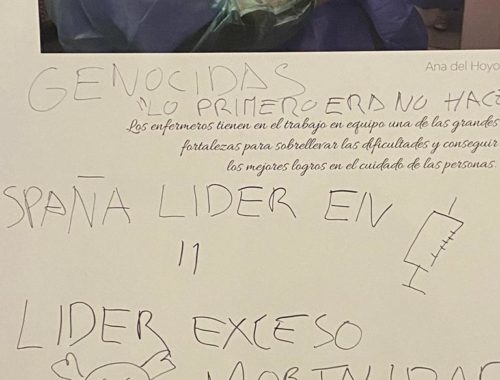 Ana del Hoyo
GENOCIDAS
"LO PRIMERO ERA NO HACE
Los enfermeros tienen en el trabajo en equipo una de las grandes
fortalezas para sobrellevar las dificultades y conseguir
los mejores logros en el cuidado de las personas.
SPAÑA LIDER EN
"
LIDER EXCESO